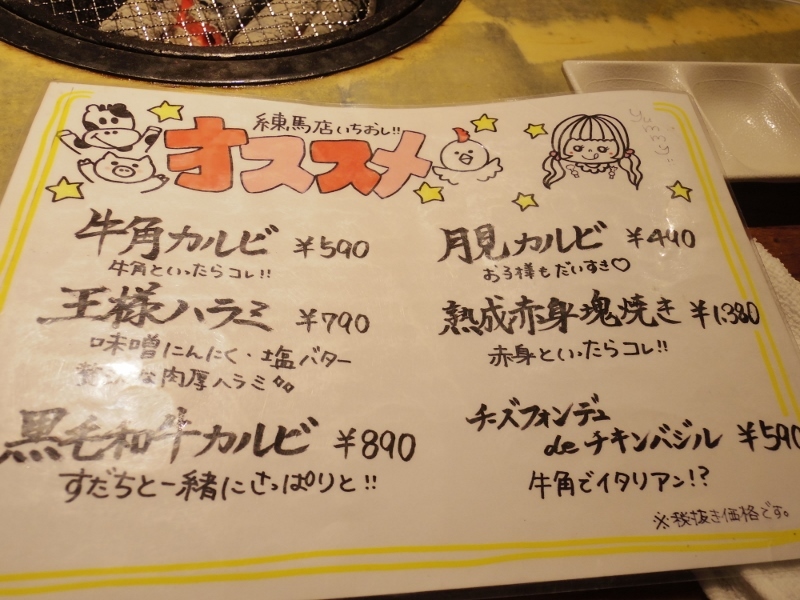 練馬店いちおし!!
オススメ
yummy!!
牛角カルビ ¥590
牛角といったらコレ!!
王様ハラミ ¥790
味噌にんにく・塩バター
贅沢な肉厚ハラミ
黒毛和牛カルビ ¥890
すだちと一緒にさっぱりと!!
月見カルビ ¥490
お子様もだいすき♡
熟成赤身塊焼き ¥1,380
赤身といったらコレ!!
チーズフォンデュ
deチキンバジル ¥590
牛角でイタリアン!?
※税抜き価格です。